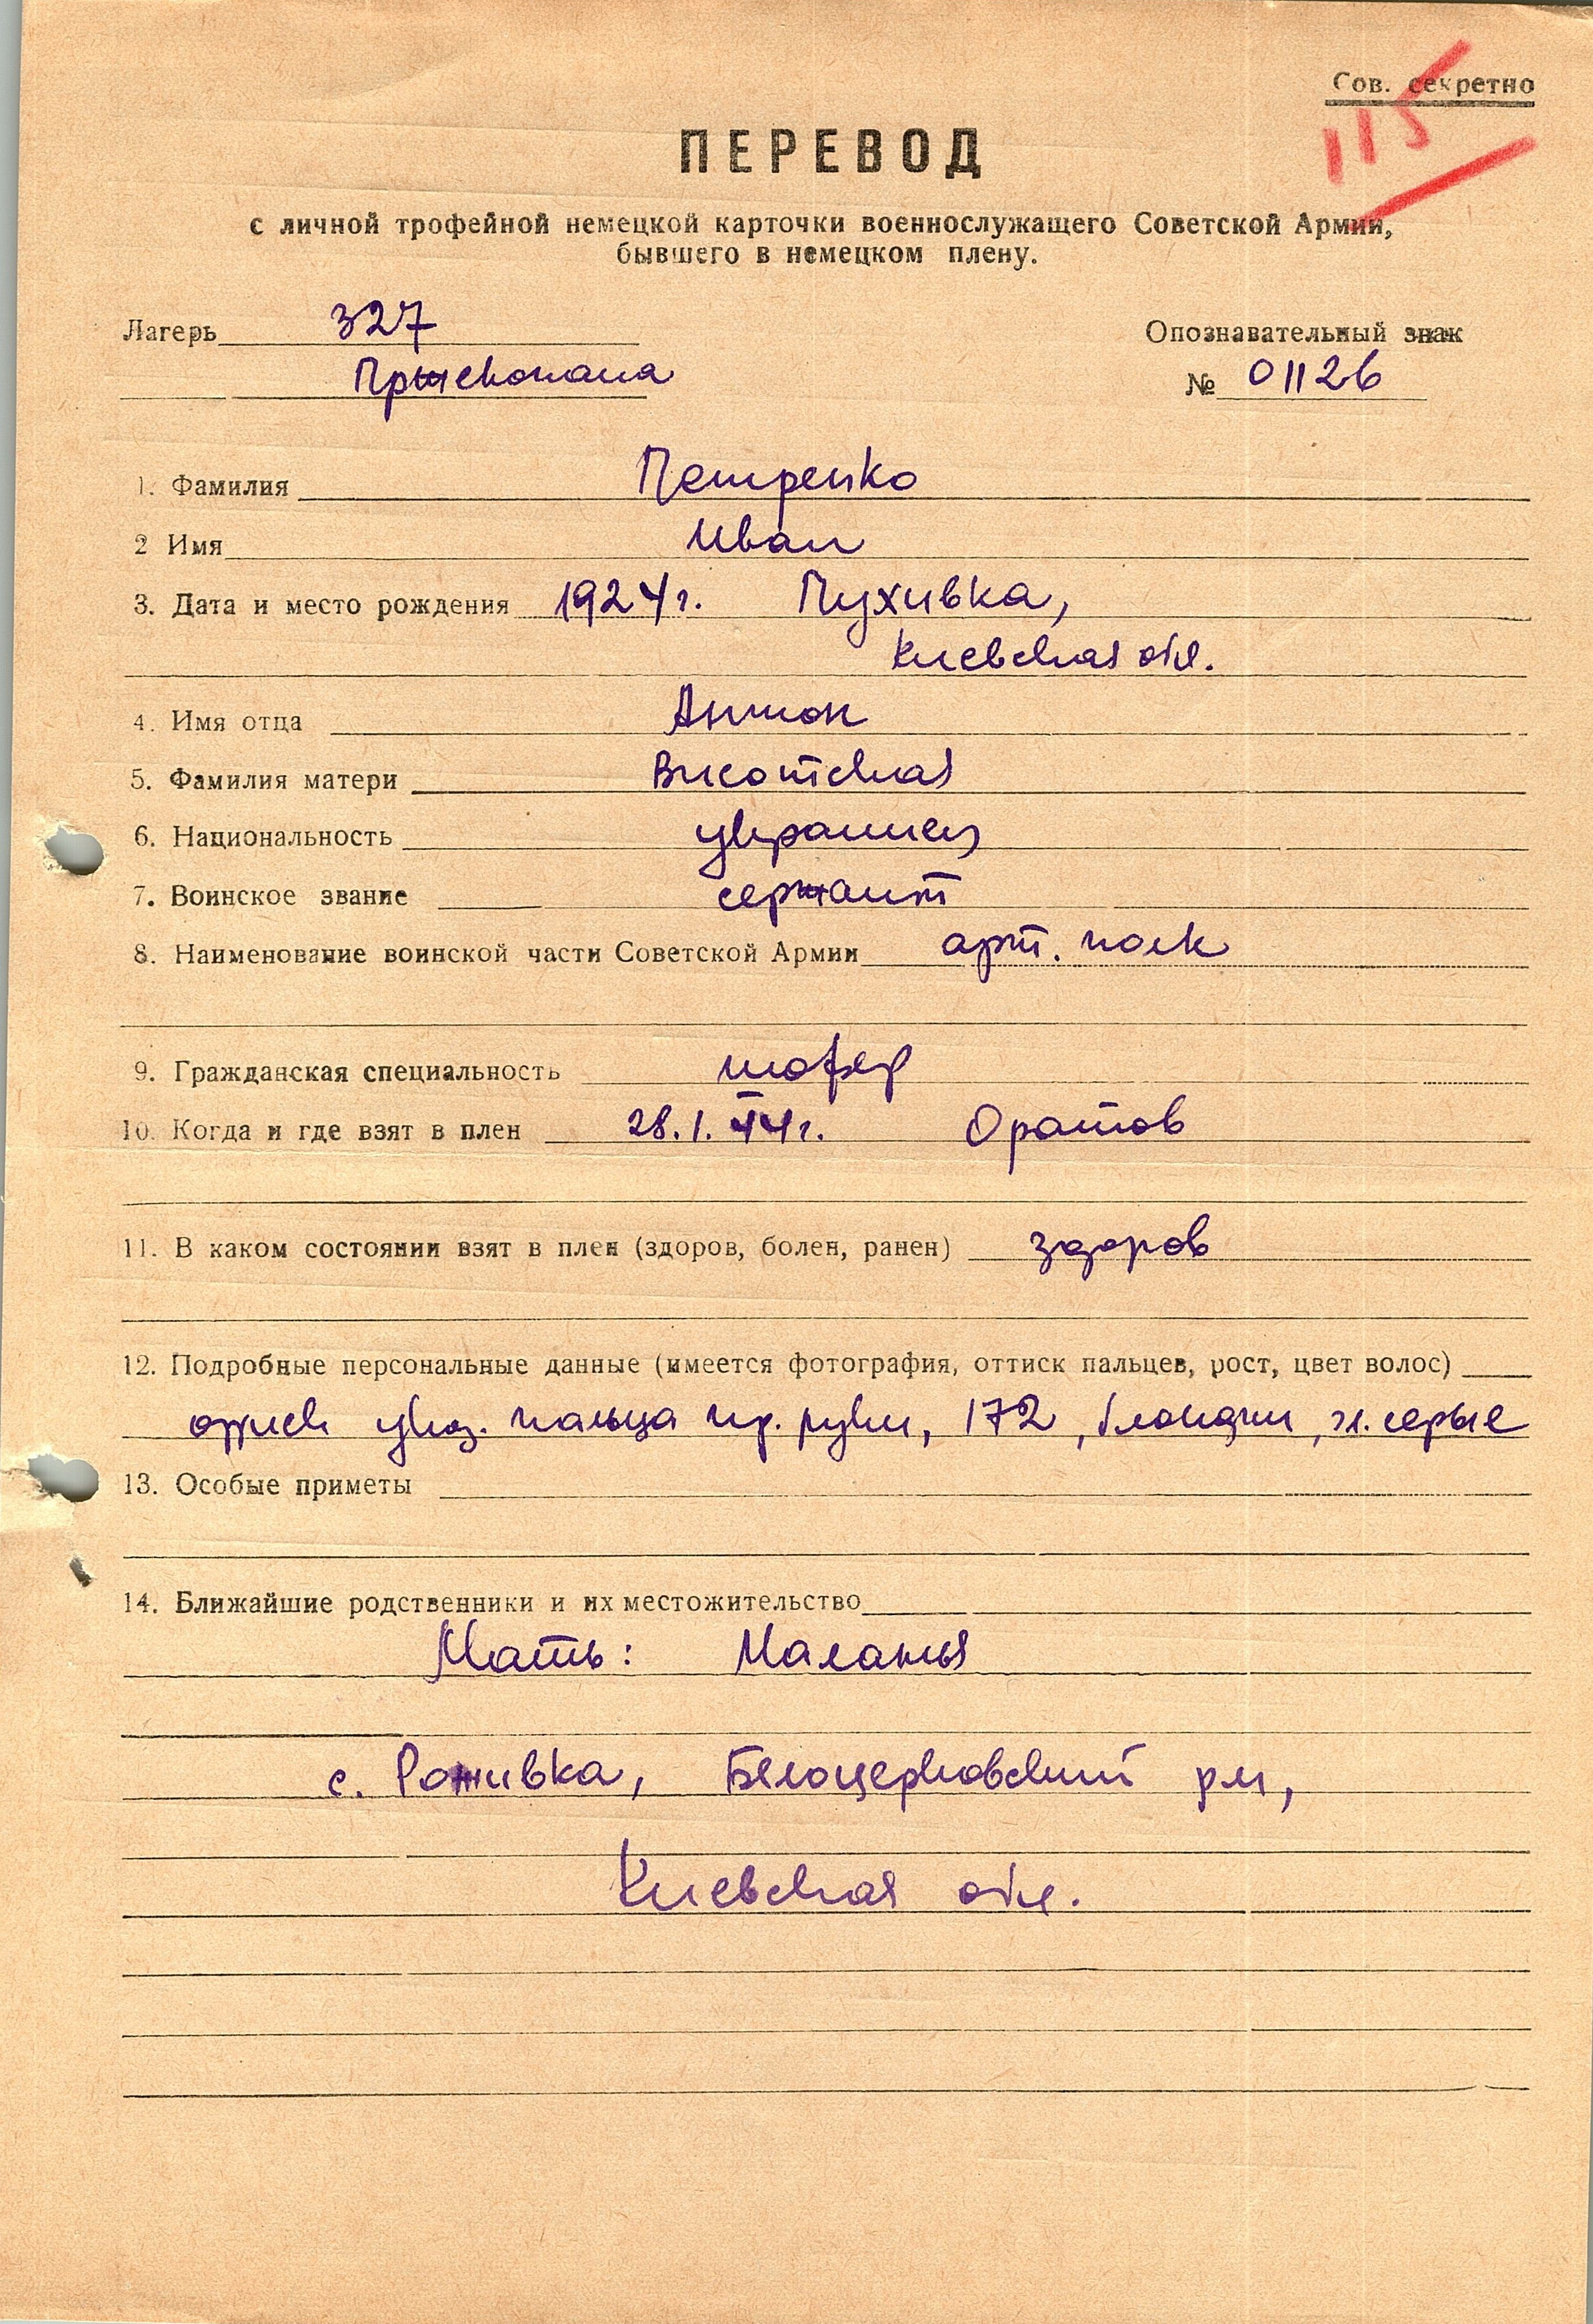 Сов. секретно
115
ПЕРЕВОД
с личной трофейной немецкой карточки военнослужащего Советской Армии,
бывшего в немецком плену.
Лагерь 327
Опознавательный знак
№ 01126
1. Фамилия Петренко
2 Имя Иван
3. Дата и место рождения 1924г. Пухивка,
Киевская обл.
4. Имя отца Антон
5. Фамилия матери Висотская
6. Национальность украинец
7. Воинское звание сержант
8. Наименование воинской части Советской Армии арт. полк
9. Гражданская специальность шофер
10. Когда и где взят в плен 28.1.44г. Оратов
11. В каком состоянии взят в плен (здоров, болен, ранен) здоров
12. Подробные персональные данные (имеется фотография, оттиск пальцев, рост, цвет волос)
оттиск указ. пальца пр. руки, 172, блондин, гл. серые
13. Особые приметы
14. Ближайшие родственники и их местожительство
Мать: Маланья
с. Роживка, Белоцерковский р-н,
Киевская обл.